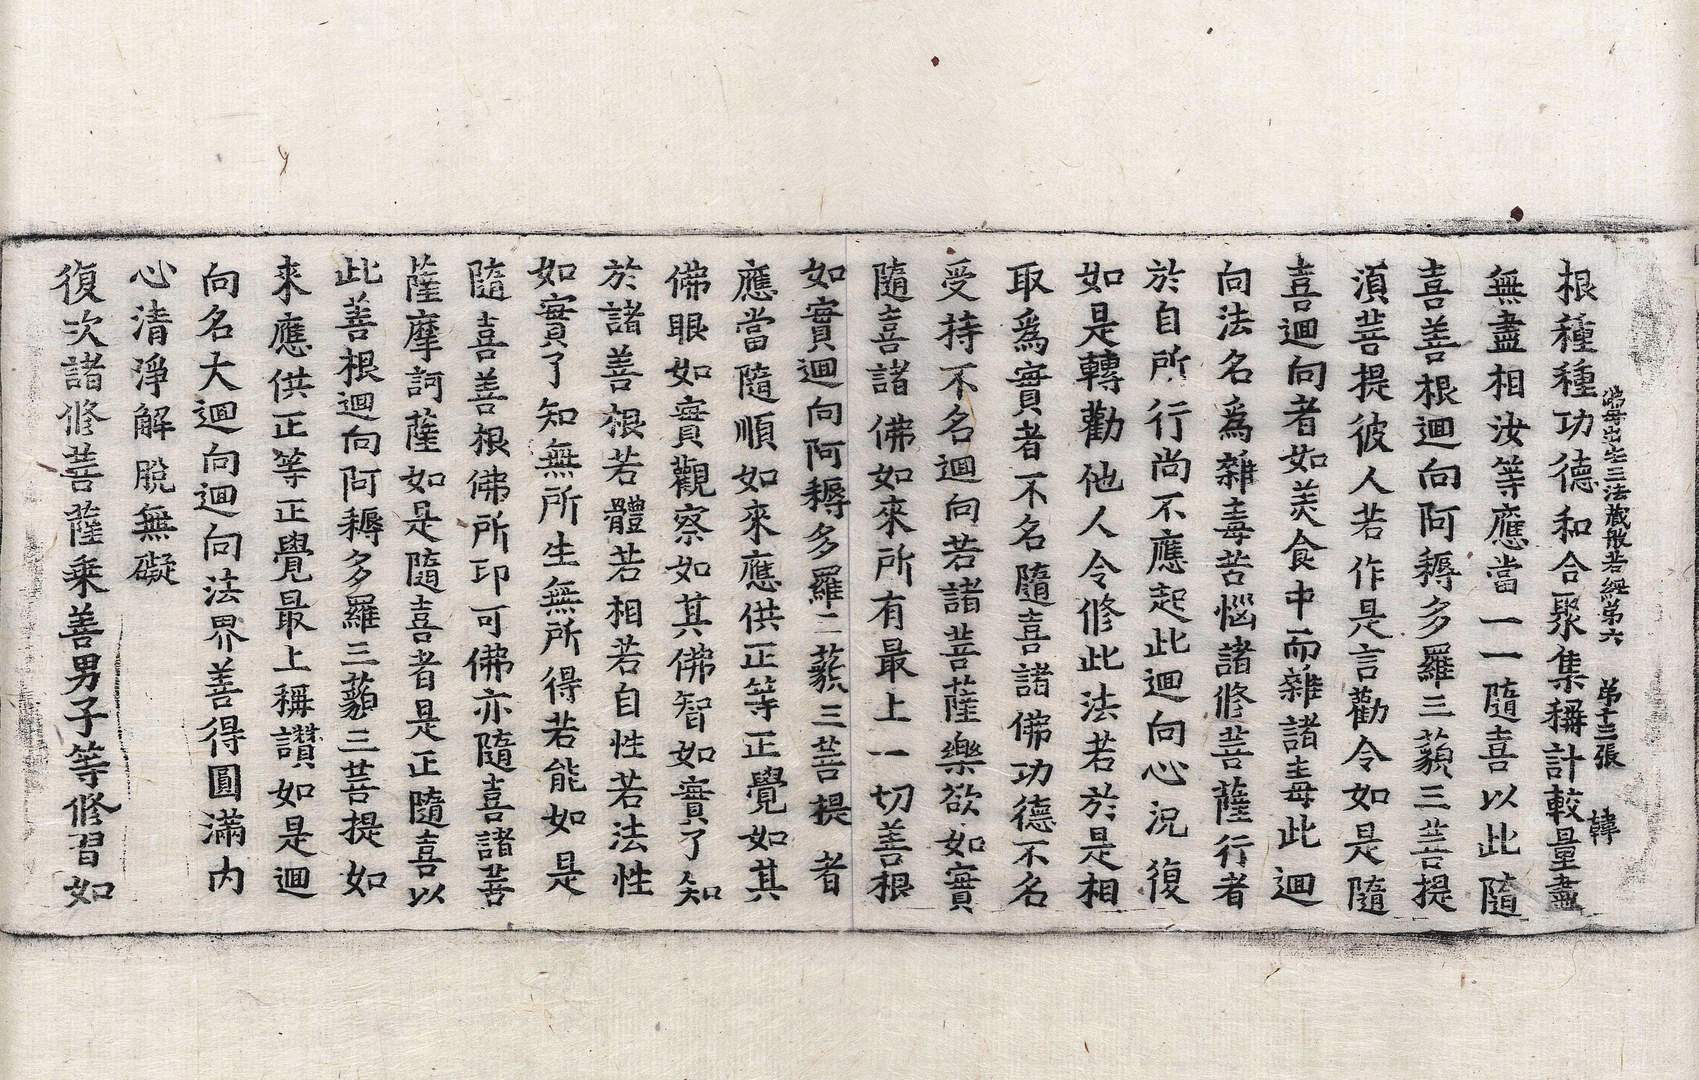 佛母出生三法藏般若經第六　第十三張　韓
根種種功德和合聚集稱計較量盡
無盡相汝等應當一一隨喜以此隨
喜善根迴向阿耨多羅三藐三菩提
湏菩提彼人若作是言勸令如是隨
喜迴向者如美食中而雜諸毒此迴
向法名爲雜毒苦惱諸修菩薩行者
於自所行尚不應起此迴向心況復
如是轉勸他人令修此法若於是相
取爲實者不名隨喜諸佛功德不名
受持不名迴向若諸菩薩樂欲如實
隨喜諸佛如來所有最上一切善根
如實迴向阿耨多羅三藐三菩提者
應當隨順如來應供正等正覺如其
佛眼如實觀察如其佛智如實了知
於諸善根若體若相若自性若法性
如實了知無所生無所得若能如是
隨喜善根佛所印可佛亦隨喜諸菩
薩摩訶薩如是隨喜者是正隨喜以
此善根迴向阿耨多羅三藐三菩提如
來應供正等正覺最上稱讚如是迴
向名大迴向迴向法界善得圓滿內
心清淨解脫無礙
復次諸修菩薩乘善男子等修習如